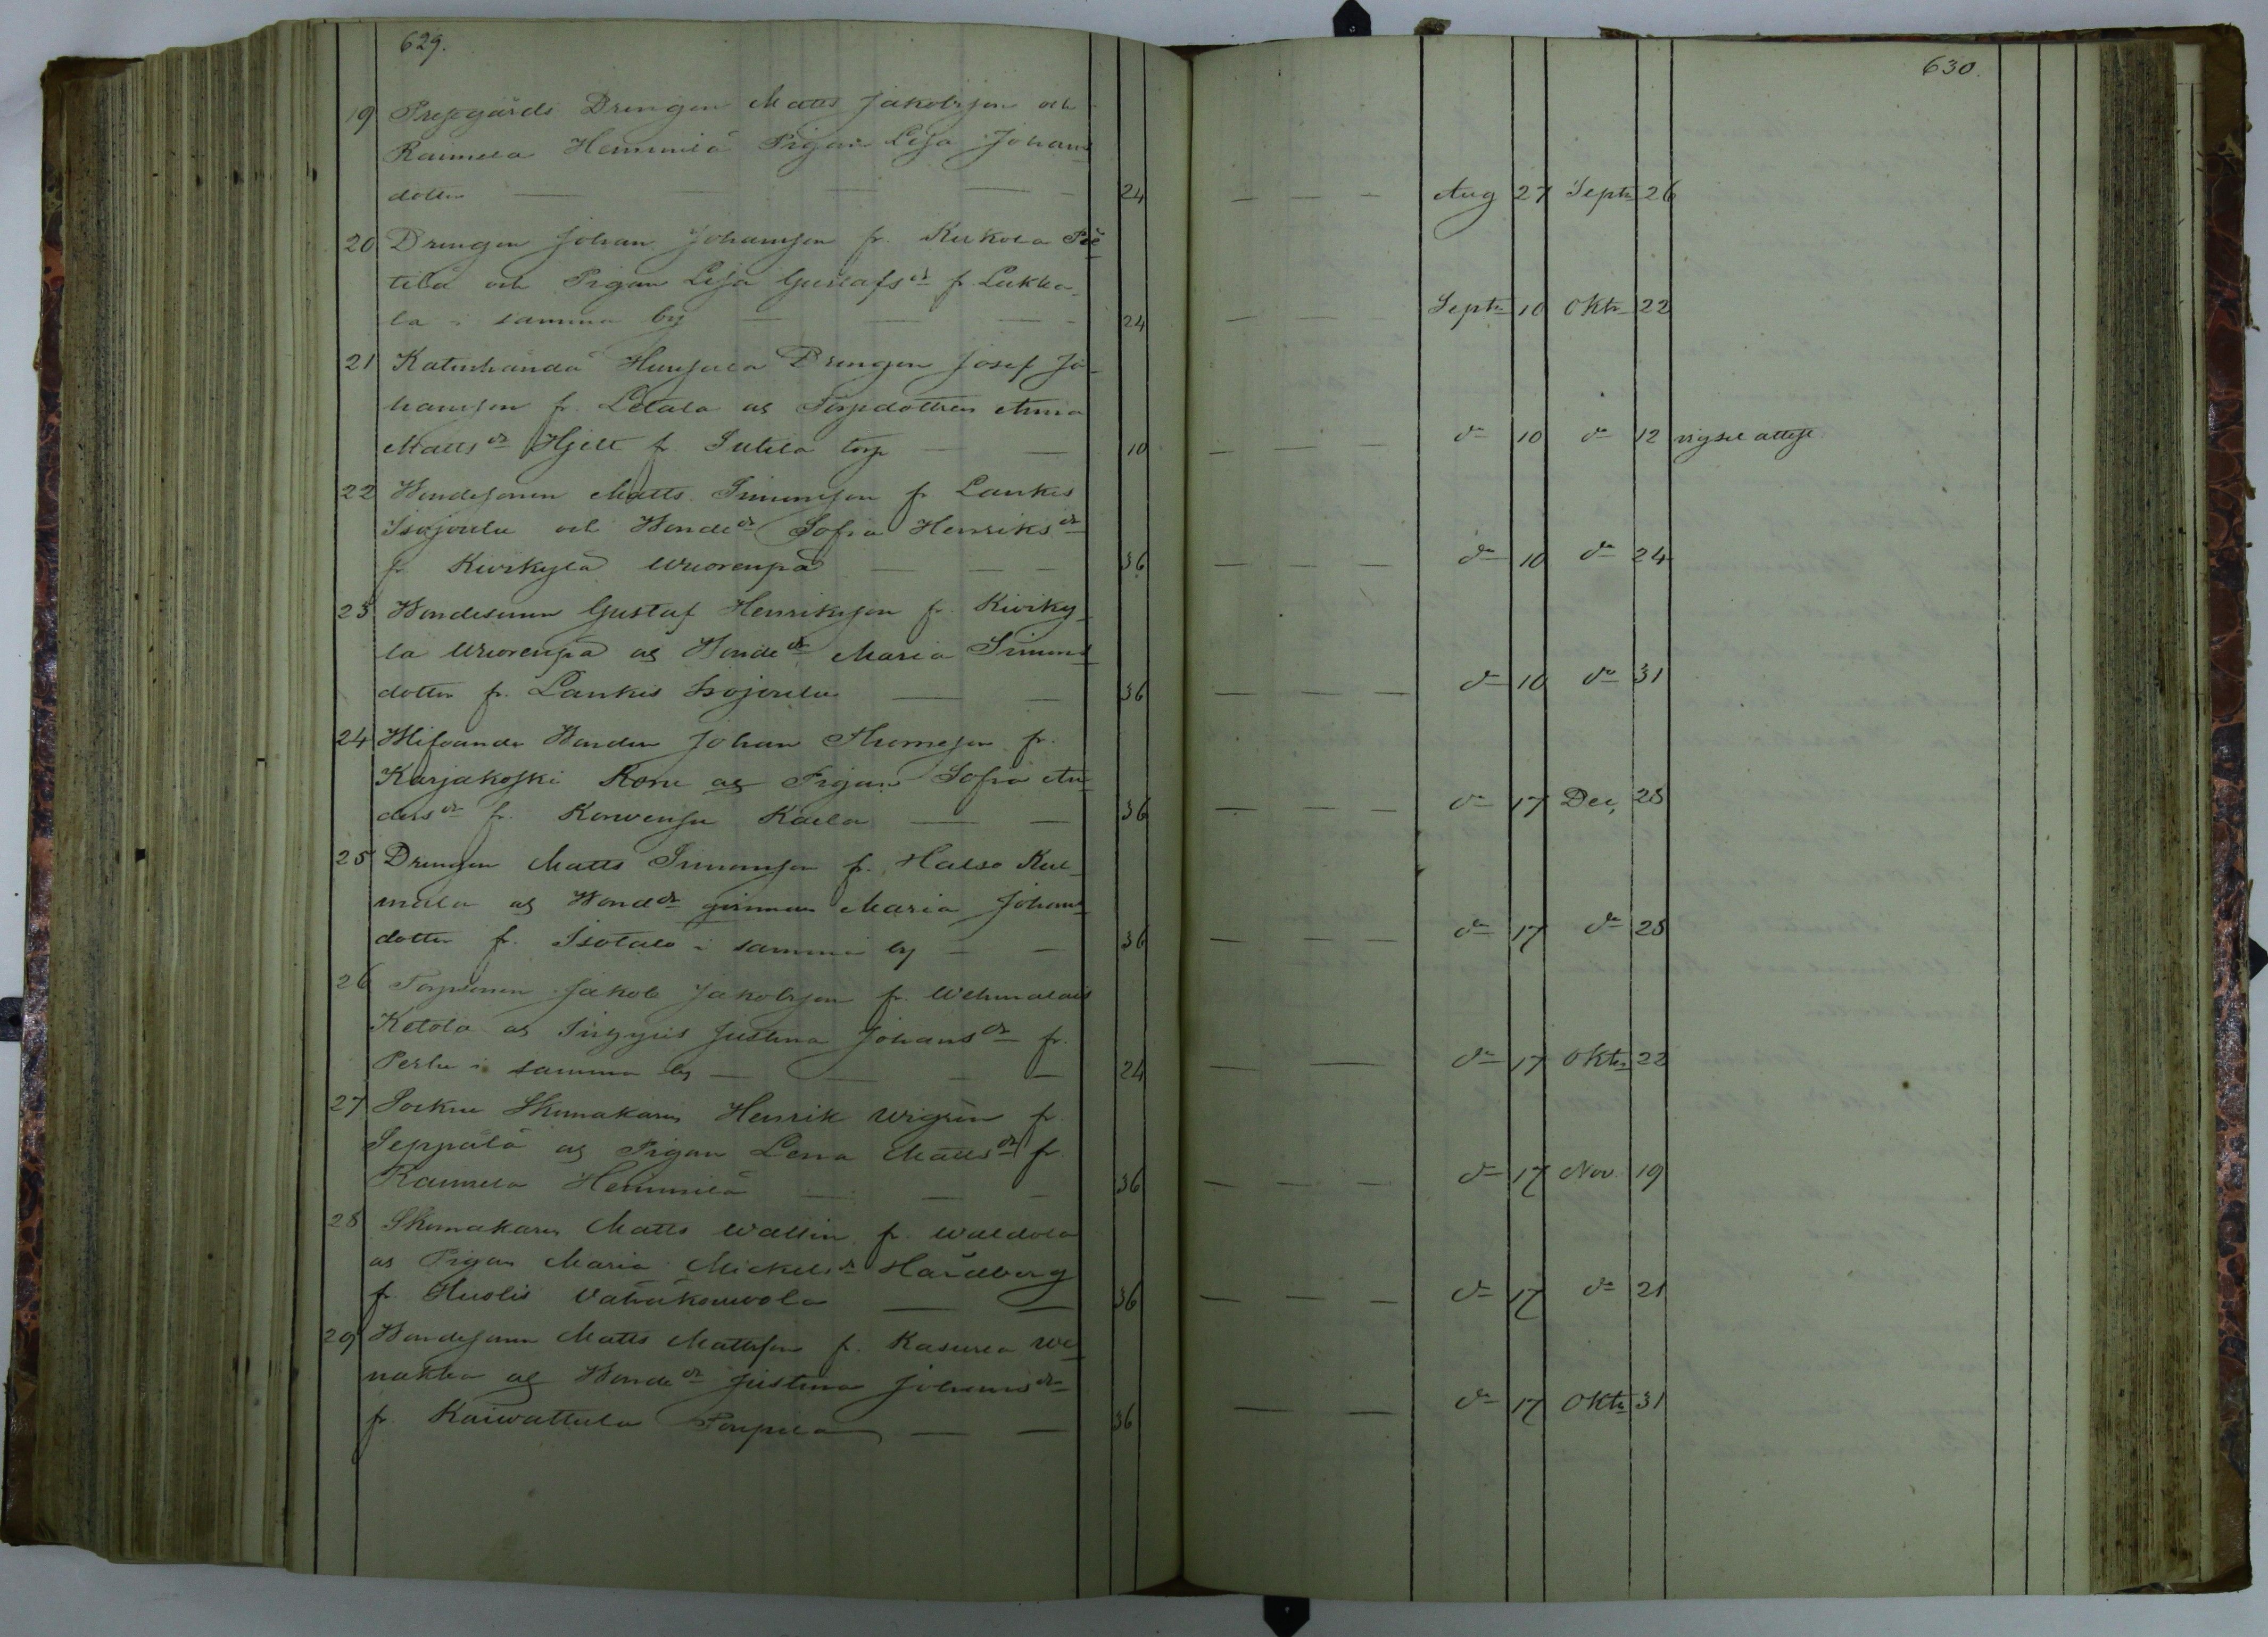 629.
630.
19 Prestgårds Drengen Matts Jakobsson och
Raumela Hemmilä Pigan Lisa Johans
dotter — — — — 24 — — — Aug 27 Septr 26
20 Drengen Johan Johansson fr. Kukola Pie
tilä och Pigan Lisa Gustafsdr fr Lukka
la i samma by — — — 24 — — Septr 10 Oktr 22
21 Katinhändä Drengen Josef Jo
hansson fr. Letala as Torpdottren Anna
Mattsdr Hjelt fr. Sutila torp — — 10 — — — do 10 do 12 vigsel attest
22 Bondesonen Matts Simonsson fr Lankis
Isojoulu och Bondedr Sofia Henriksdr
fr Kivikylä Wuorenpä — — — 36 — — — do 10 do 24
23 Bondesonen Gustaf Henriksson fr. Kiviky
la Wuorenpä as Bondedr Maria Simons
dotter fr. Lankis Isojoulu — — 36 — — — do 10 do 31
24 Bonden Johan Thomsson fr.
Karjakoski Koru as Pigan Sofia An
dersdr fr. Korvensu Kaila — — 36 — — — do 17 Dec, 28
25 Drengen Matts Simonsson fr. Halso Kul
mala as Bonddr Maria Johans
dotter fr. Isotalo i samma by — — 36 — — — do 17 do 28
26 Torpsonen Jakob Jakobsson fr. Wehmalais
Ketola as Justina Johansdr fr.
Perlu i samma by — — — — 24 — — do 17 Oktr 22
27 Sockne Skomakaren Henrik Wigren fr.
Seppälä as Pigan Lena Mattsdr fr
Raumela Hemmilä — — — 36 — — — do 17 Nov. 19
28 Skomakaren Matts Wallin fr. Waldola
as Pigan Maria Mickelsdr Hardberg
fr. Huolis Vähäkouvola — — 36 — — — do 17 do 21
29 Bondesonen Matts Mattsson fr. Kasurla We
nakka as Bondedr Justina Johansdr
fr. Kaiwattula Poupila — — 36 — — do 17 Oktr 31